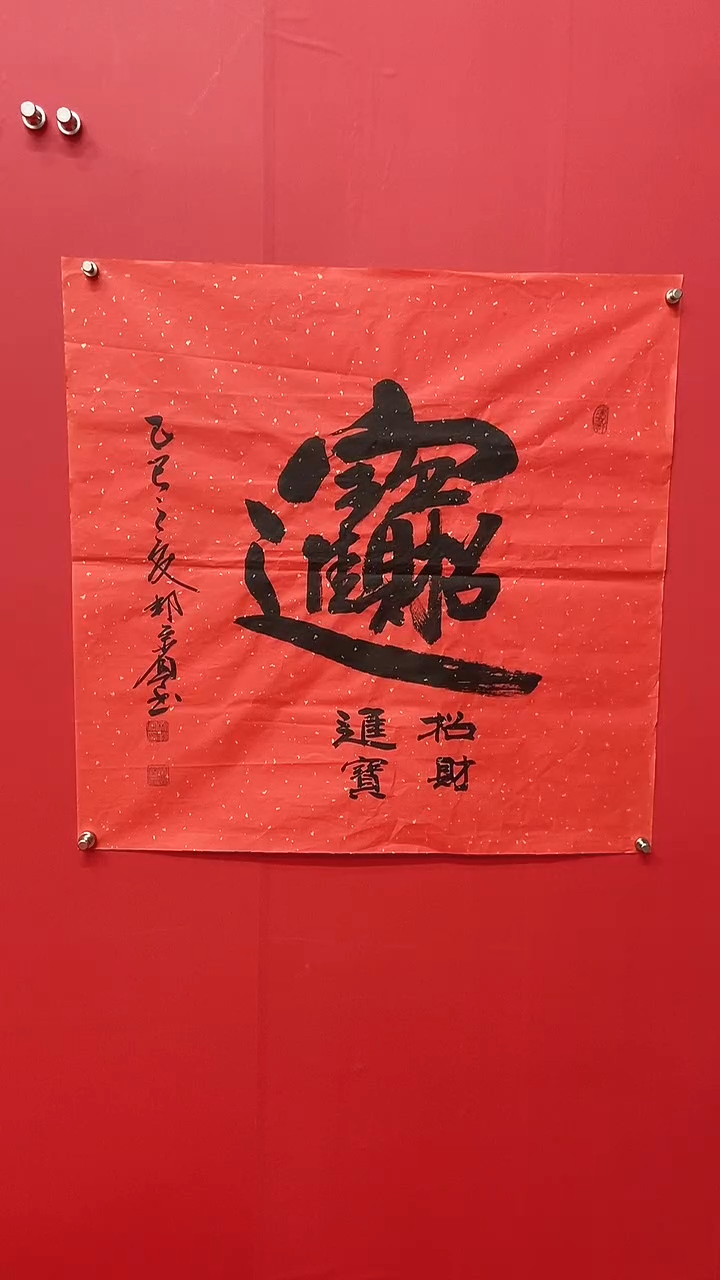 招財進寶
招財
進寶
乙巳之夏